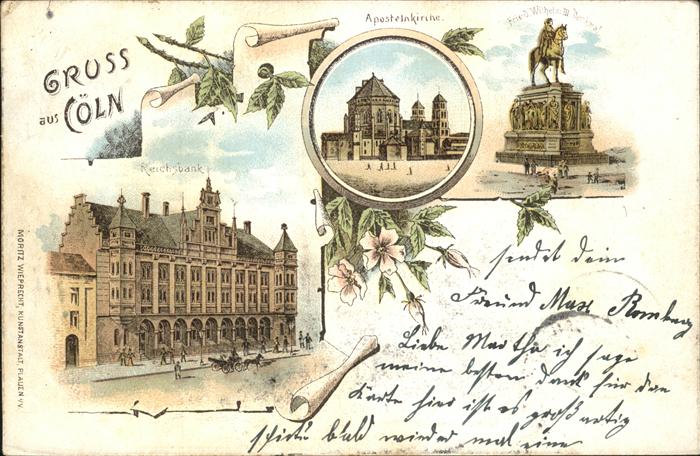 GRUSS
aus CÖLN
Apostelnkirche.
Friedr. Wilhelm III Denkmal
Reichsbank
MORITZ WIEPRECHT, KUNSTANSTALT, PLAUEN i/V.
sendet dein
Freund Max Romberg
Liebe Martha ich sage
meine besten Dank für die
Karte hier ist es großartig
schicke bald wieder mal eine